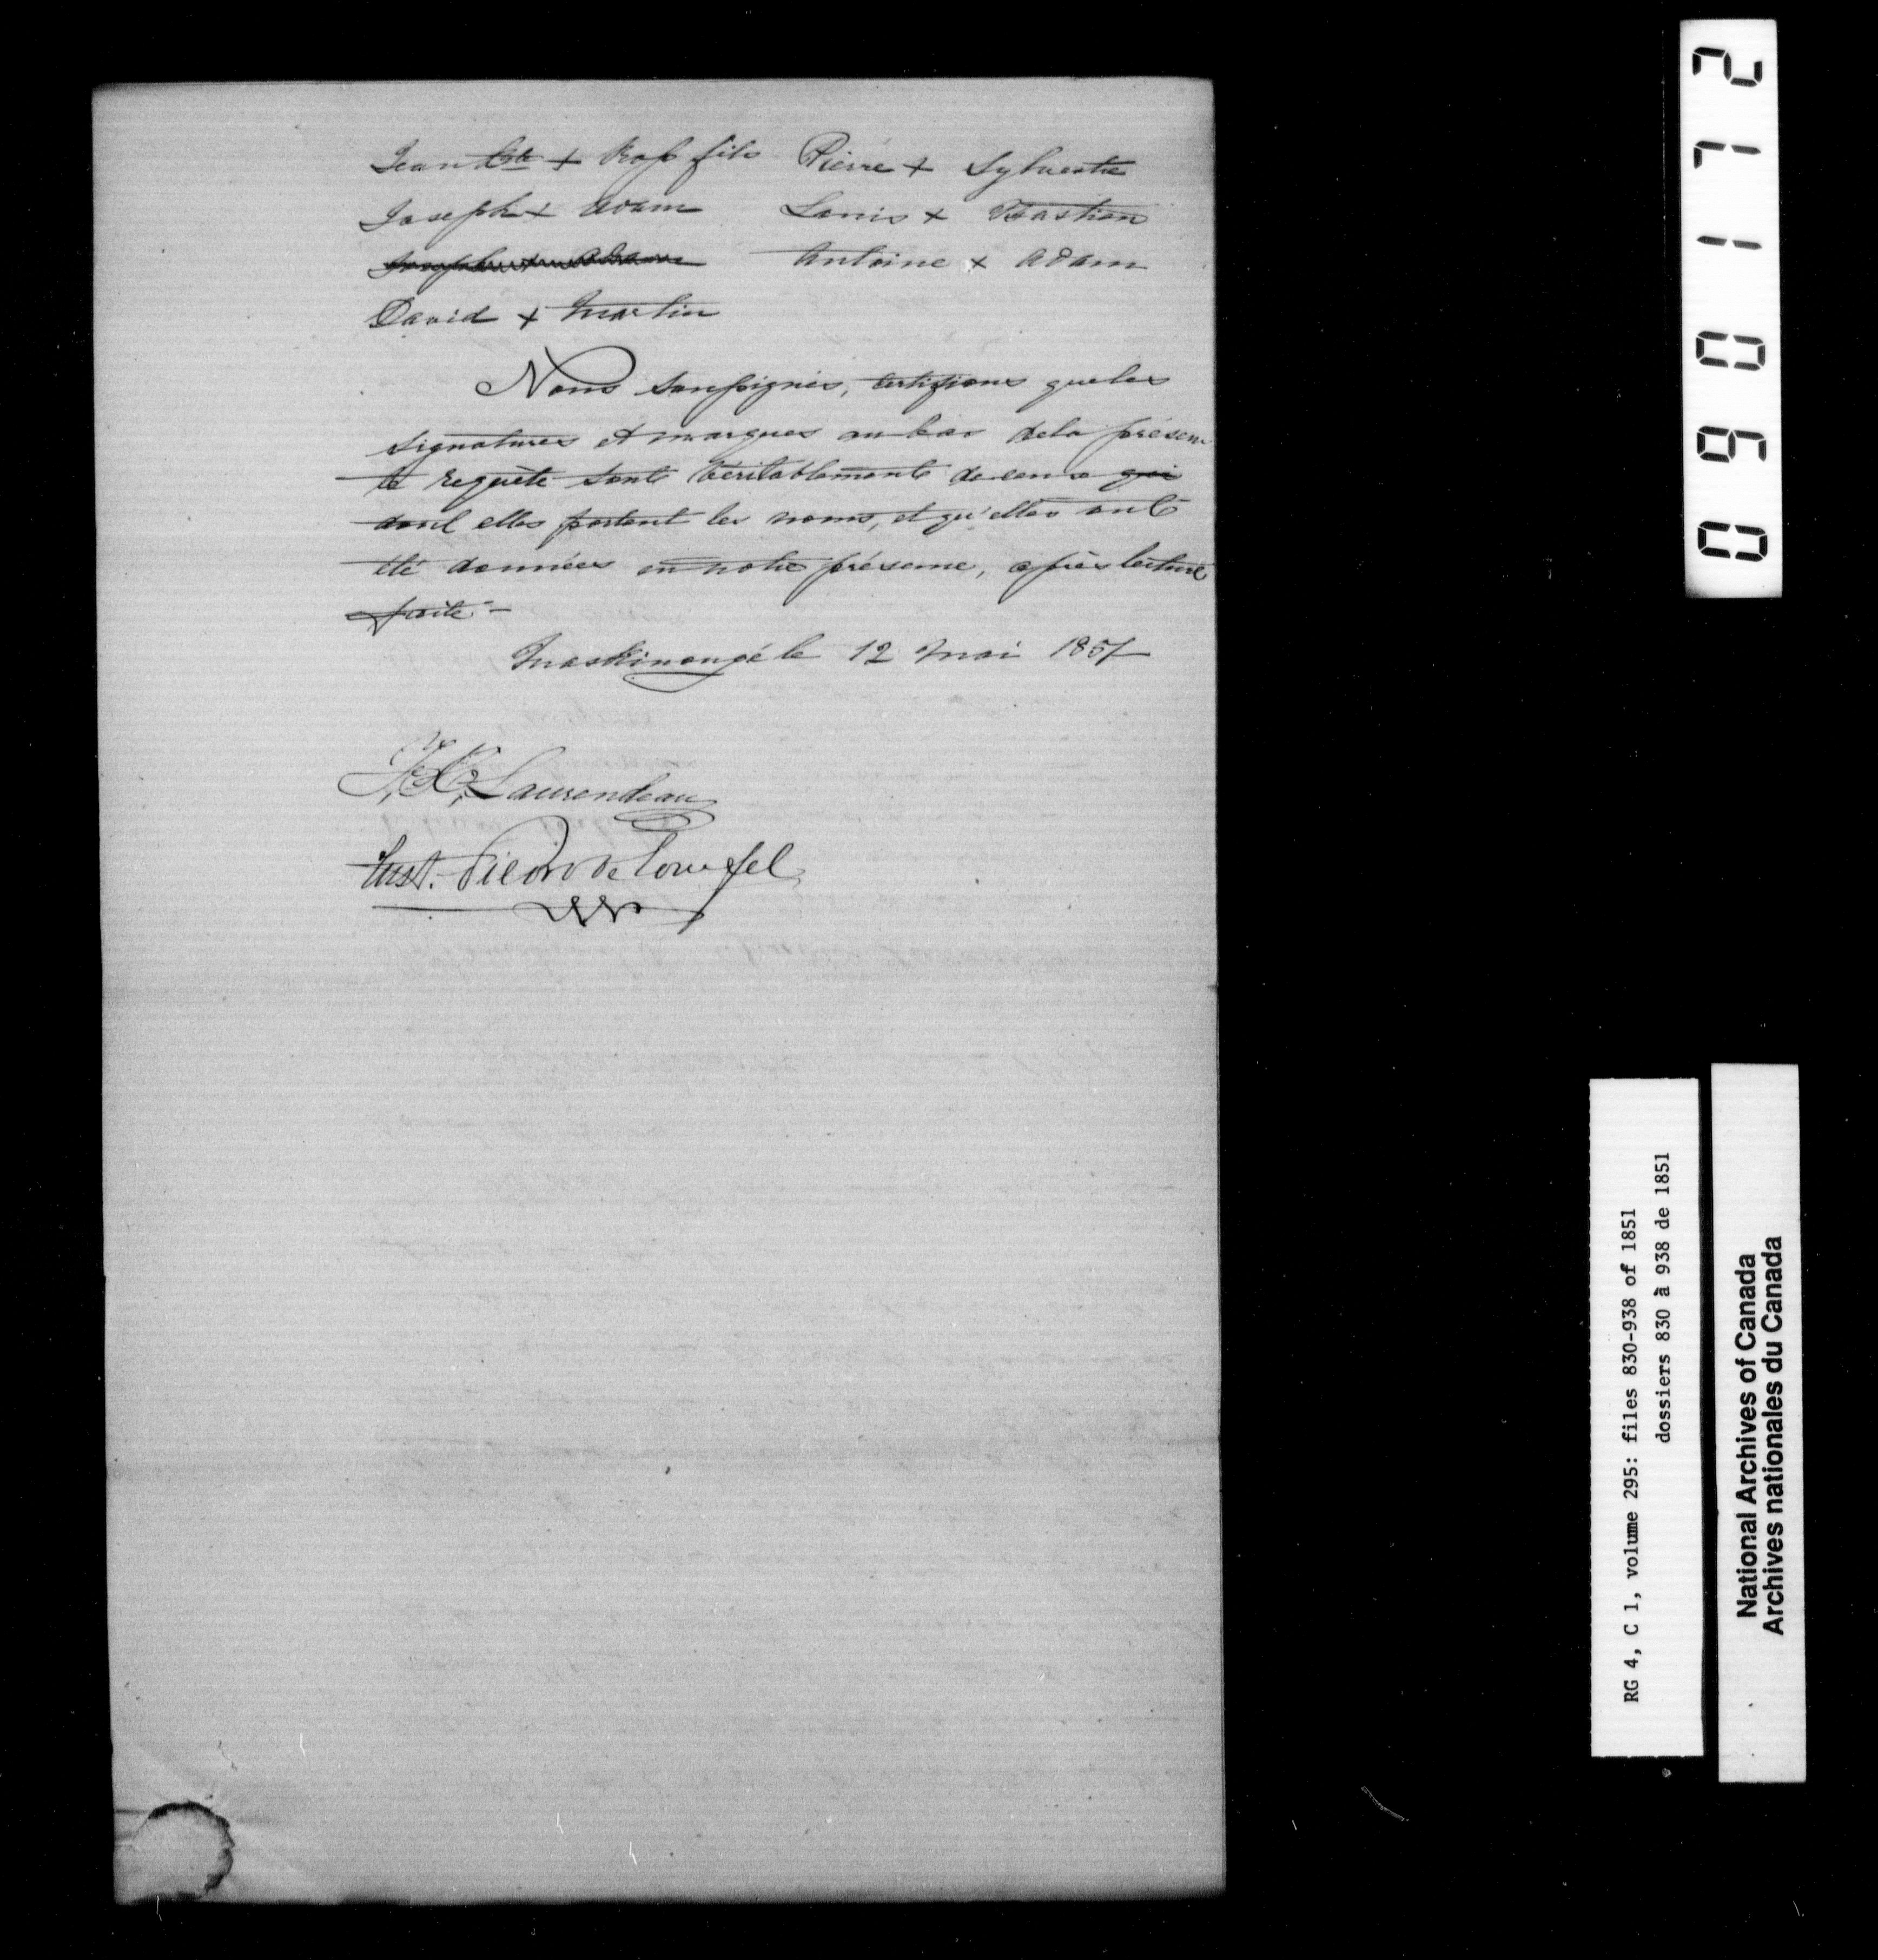 Jean Bte + Trop fils Pierre + Sylvestre
Joseph + Adam Louis + Bastien
Joseph + Adam Antoine + Adam
David + Martin
Nous soussignés, certifions que les
signatures et marques au bas de la présen
te requête sont véritablement de ceux qui
dont elles portent les noms, et qu'elles ont
été données en notre présence, après lecture
faite -
Maskinongé le 12 Mai 1851
F, X, Laurendeau
Pierre
RG 4, C 1, volume 295: files 830-938 of 1851
dossiers 830 à 938 de 1851
National Archives of Canada
Archives nationales du Canada